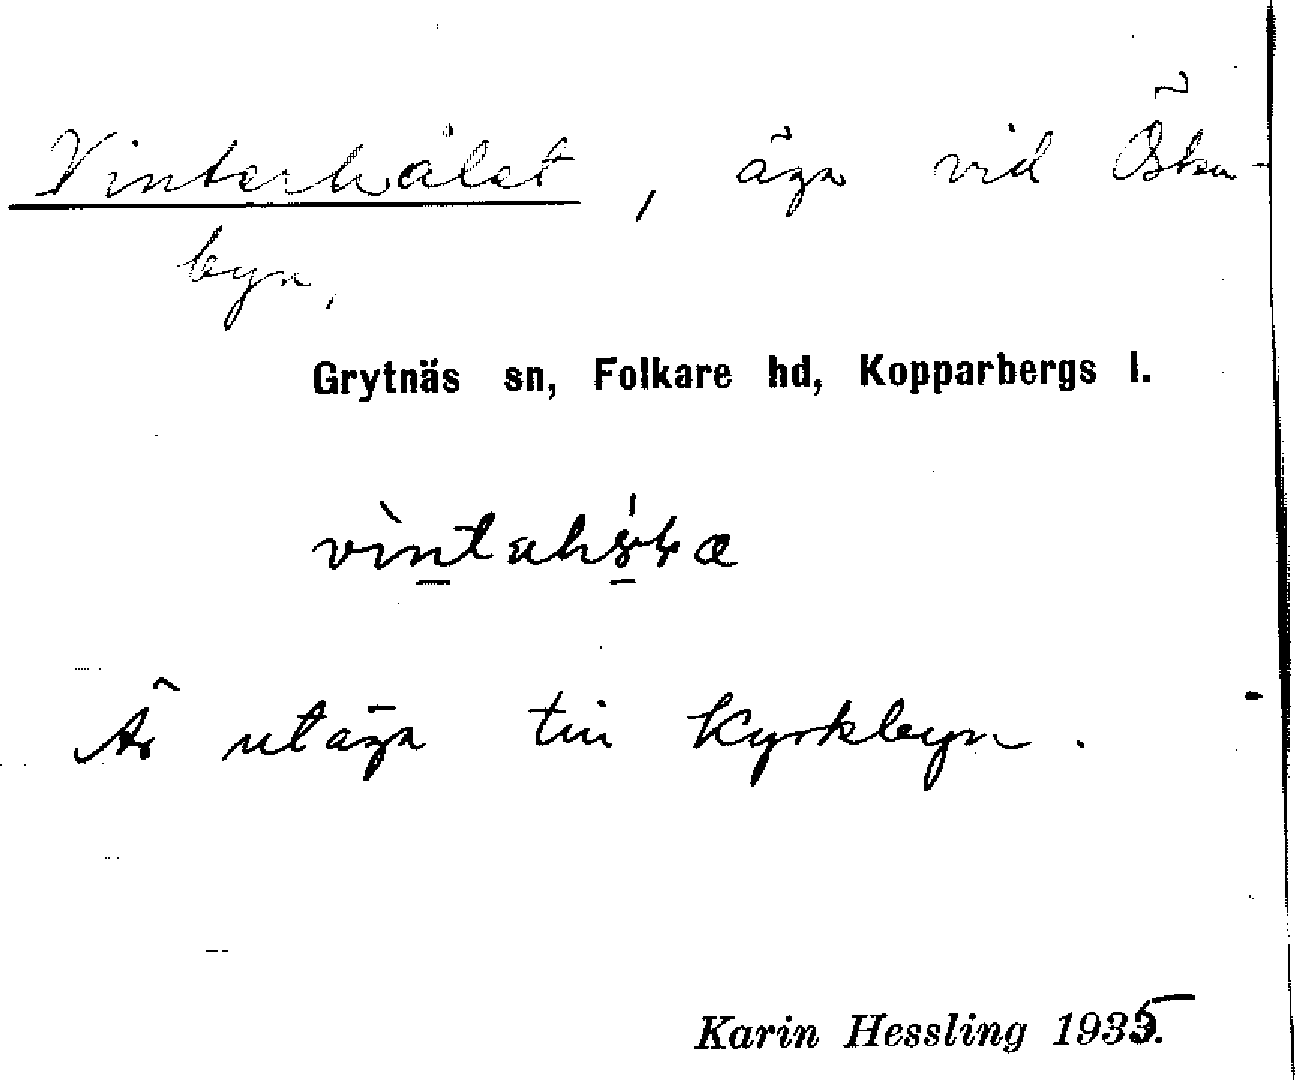 Vinterhålet, äga vid Öster-
byn,
Grytnäs sn, Folkare hd, Kopparbergs l.
Är utäga till Kyrkbyn.
Karin Hessling 1935.